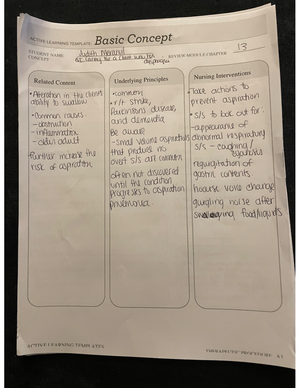 ACTIVE LEARNING TEMPLATE: Basic Concept
STUDENT NAME Judith
CONCEPT Caring for a client with dysphagia REVIEW MODULE CHAPTER 13
Related Content
• Alteration in the clients
ability to swallow
• Common causes
- obstruction
- inflammation
- older adult
further increase the
risk of aspiration
Underlying Principles
• r/t stroke,
Parkinsons disease,
and dementia
Be aware
- Small volume aspirations
that produce no
overt s/s are common
often not discovered
until the condition
progresses to aspiration
pneumonia
Nursing Interventions
Take actions to
prevent aspiration
• s/s to look out for
- appearance of
abnormal respiratory
s/s - coughing/
regurgitation of
gastric contents
hoarse voice change
gurgling noise after
food/liquids
ACTIVE LEARNING TEMPLATES
THERAPEUTIC PROCEDURE